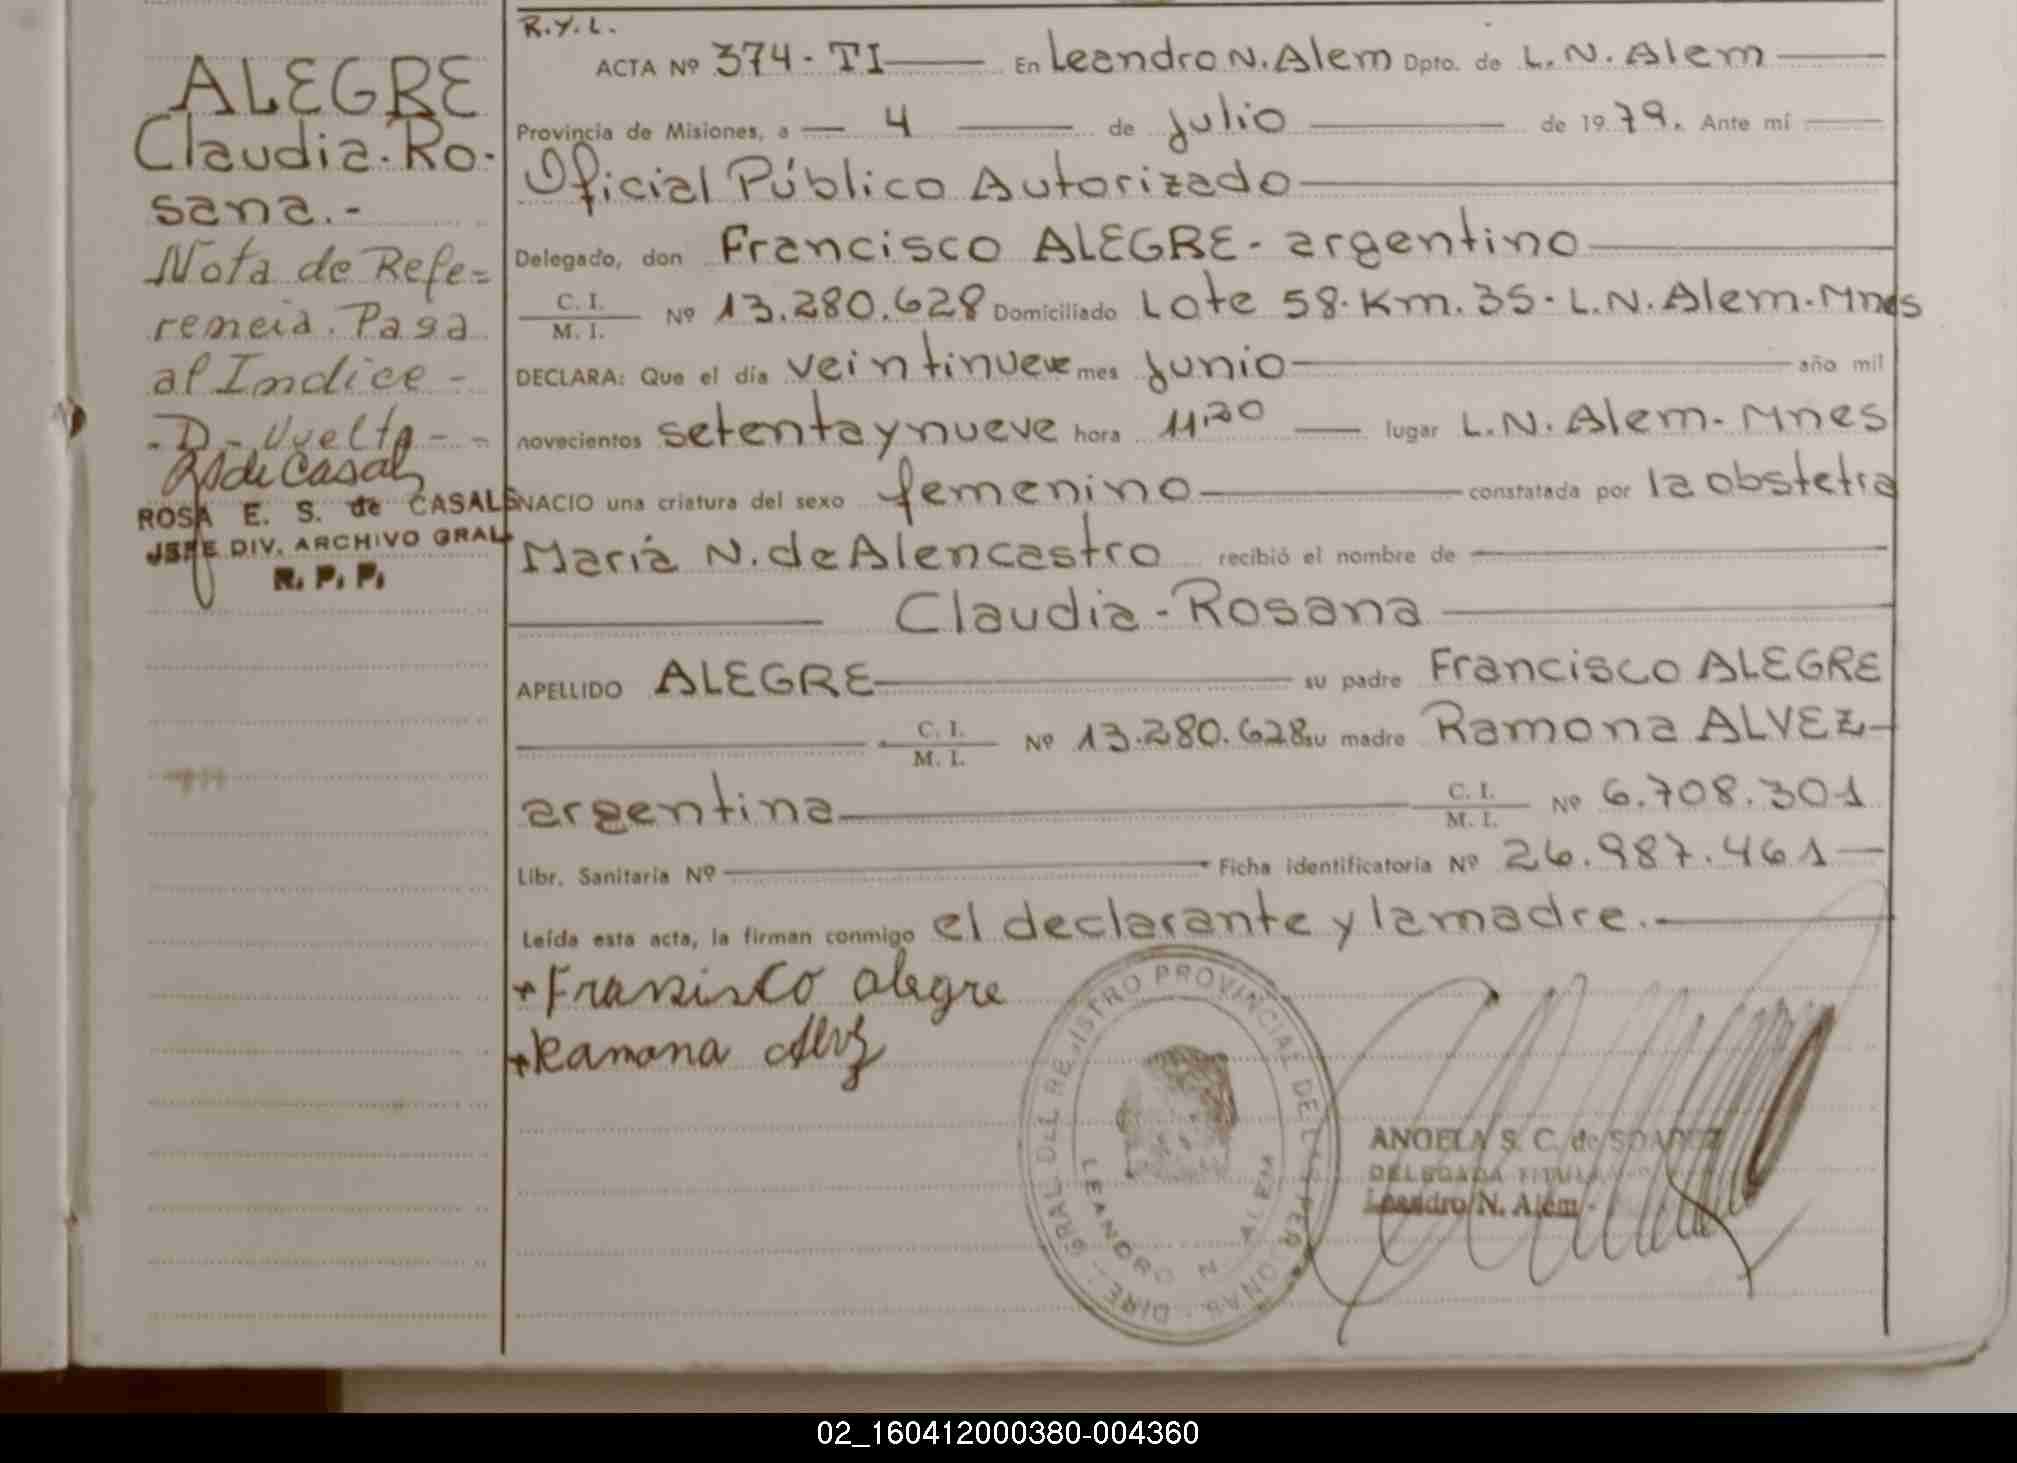 ALEGRE
Claudia-Ro-
sana.-
Nota de Refe=
rencia. Pasa
al Indice -
-D- Vuelta - -
RSde Casals
ROSA E. S. de CASALS
JEFE DIV. ARCHIVO GRAL
R. P. P.
R.Y.L.
ACTA Nº 374 - TI En Leandro N. Alem Dpto. de L. N. Alem
Provincia de Misiones, a 4 de julio de 1979. Ante mí
Oficial Público Autorizado
Delegado, don Francisco ALEGRE - argentino
C. I.
M. I. Nº 13.280.628 Domiciliado Lote 58-Km. 35-L.N. Alem-Mnes
DECLARA: Que el día veintinueve mes junio año mil
novecientos setenta y nueve hora 11,20 lugar L.N. Alem-Mnes
NACIO una criatura del sexo femenino constatada por la obstetra
María N. de Alencastro recibió el nombre de
Claudia-Rosana
APELLIDO ALEGRE su padre Francisco ALEGRE
C. I.
M. I. Nº 13.280.628 su madre Ramona ALVEZ-
argentina C. I.
M. I. Nº 6.708.301
Libr. Sanitaria Nº Ficha identificatoria Nº 26.987.461
Leída esta acta, la firman conmigo el declarante y la madre.-
+Fransisco alegre
+Ramona Alvez
DIRE. GRAL. DEL REGISTRO PROVINCIAL DE LAS PERSONAS
LEANDRO N. ALEM
ANGELA S. C. de
DELEGADA TITULAR
Leandro N. Alem -
02_160412000380-004360